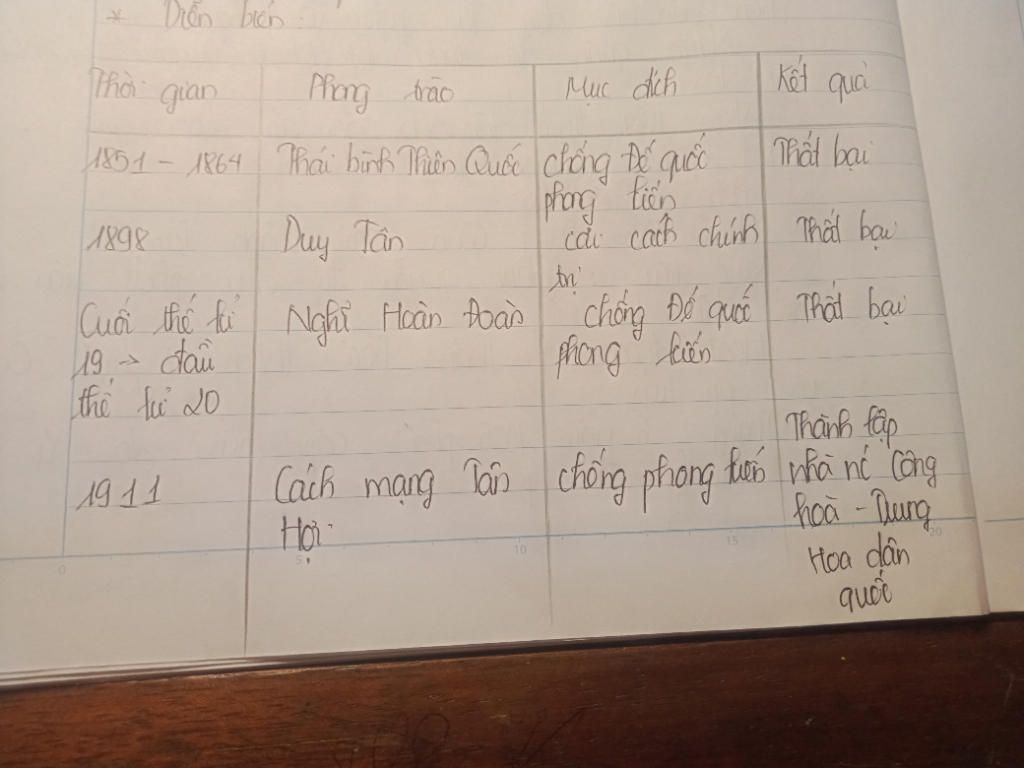 * Diễn biến:
Thời gian Phong trào Mục đích Kết quả
1851 - 1864 Thái bình Thiên Quốc chống Đế quốc phong kiến Thất bại
1898 Duy Tân cải cách chính trị Thất bại
Cuối thế kỉ 19 → đầu thế kỉ 20 Nghĩ Hoàn Đoàn chống Đế quốc phong kiến Thất bại
1911 Cách mạng Tân Hợi. chống phong kiến Thành lập nhà nc Công hoà - Dung Hoa dân quốc
0 5 10 15 20